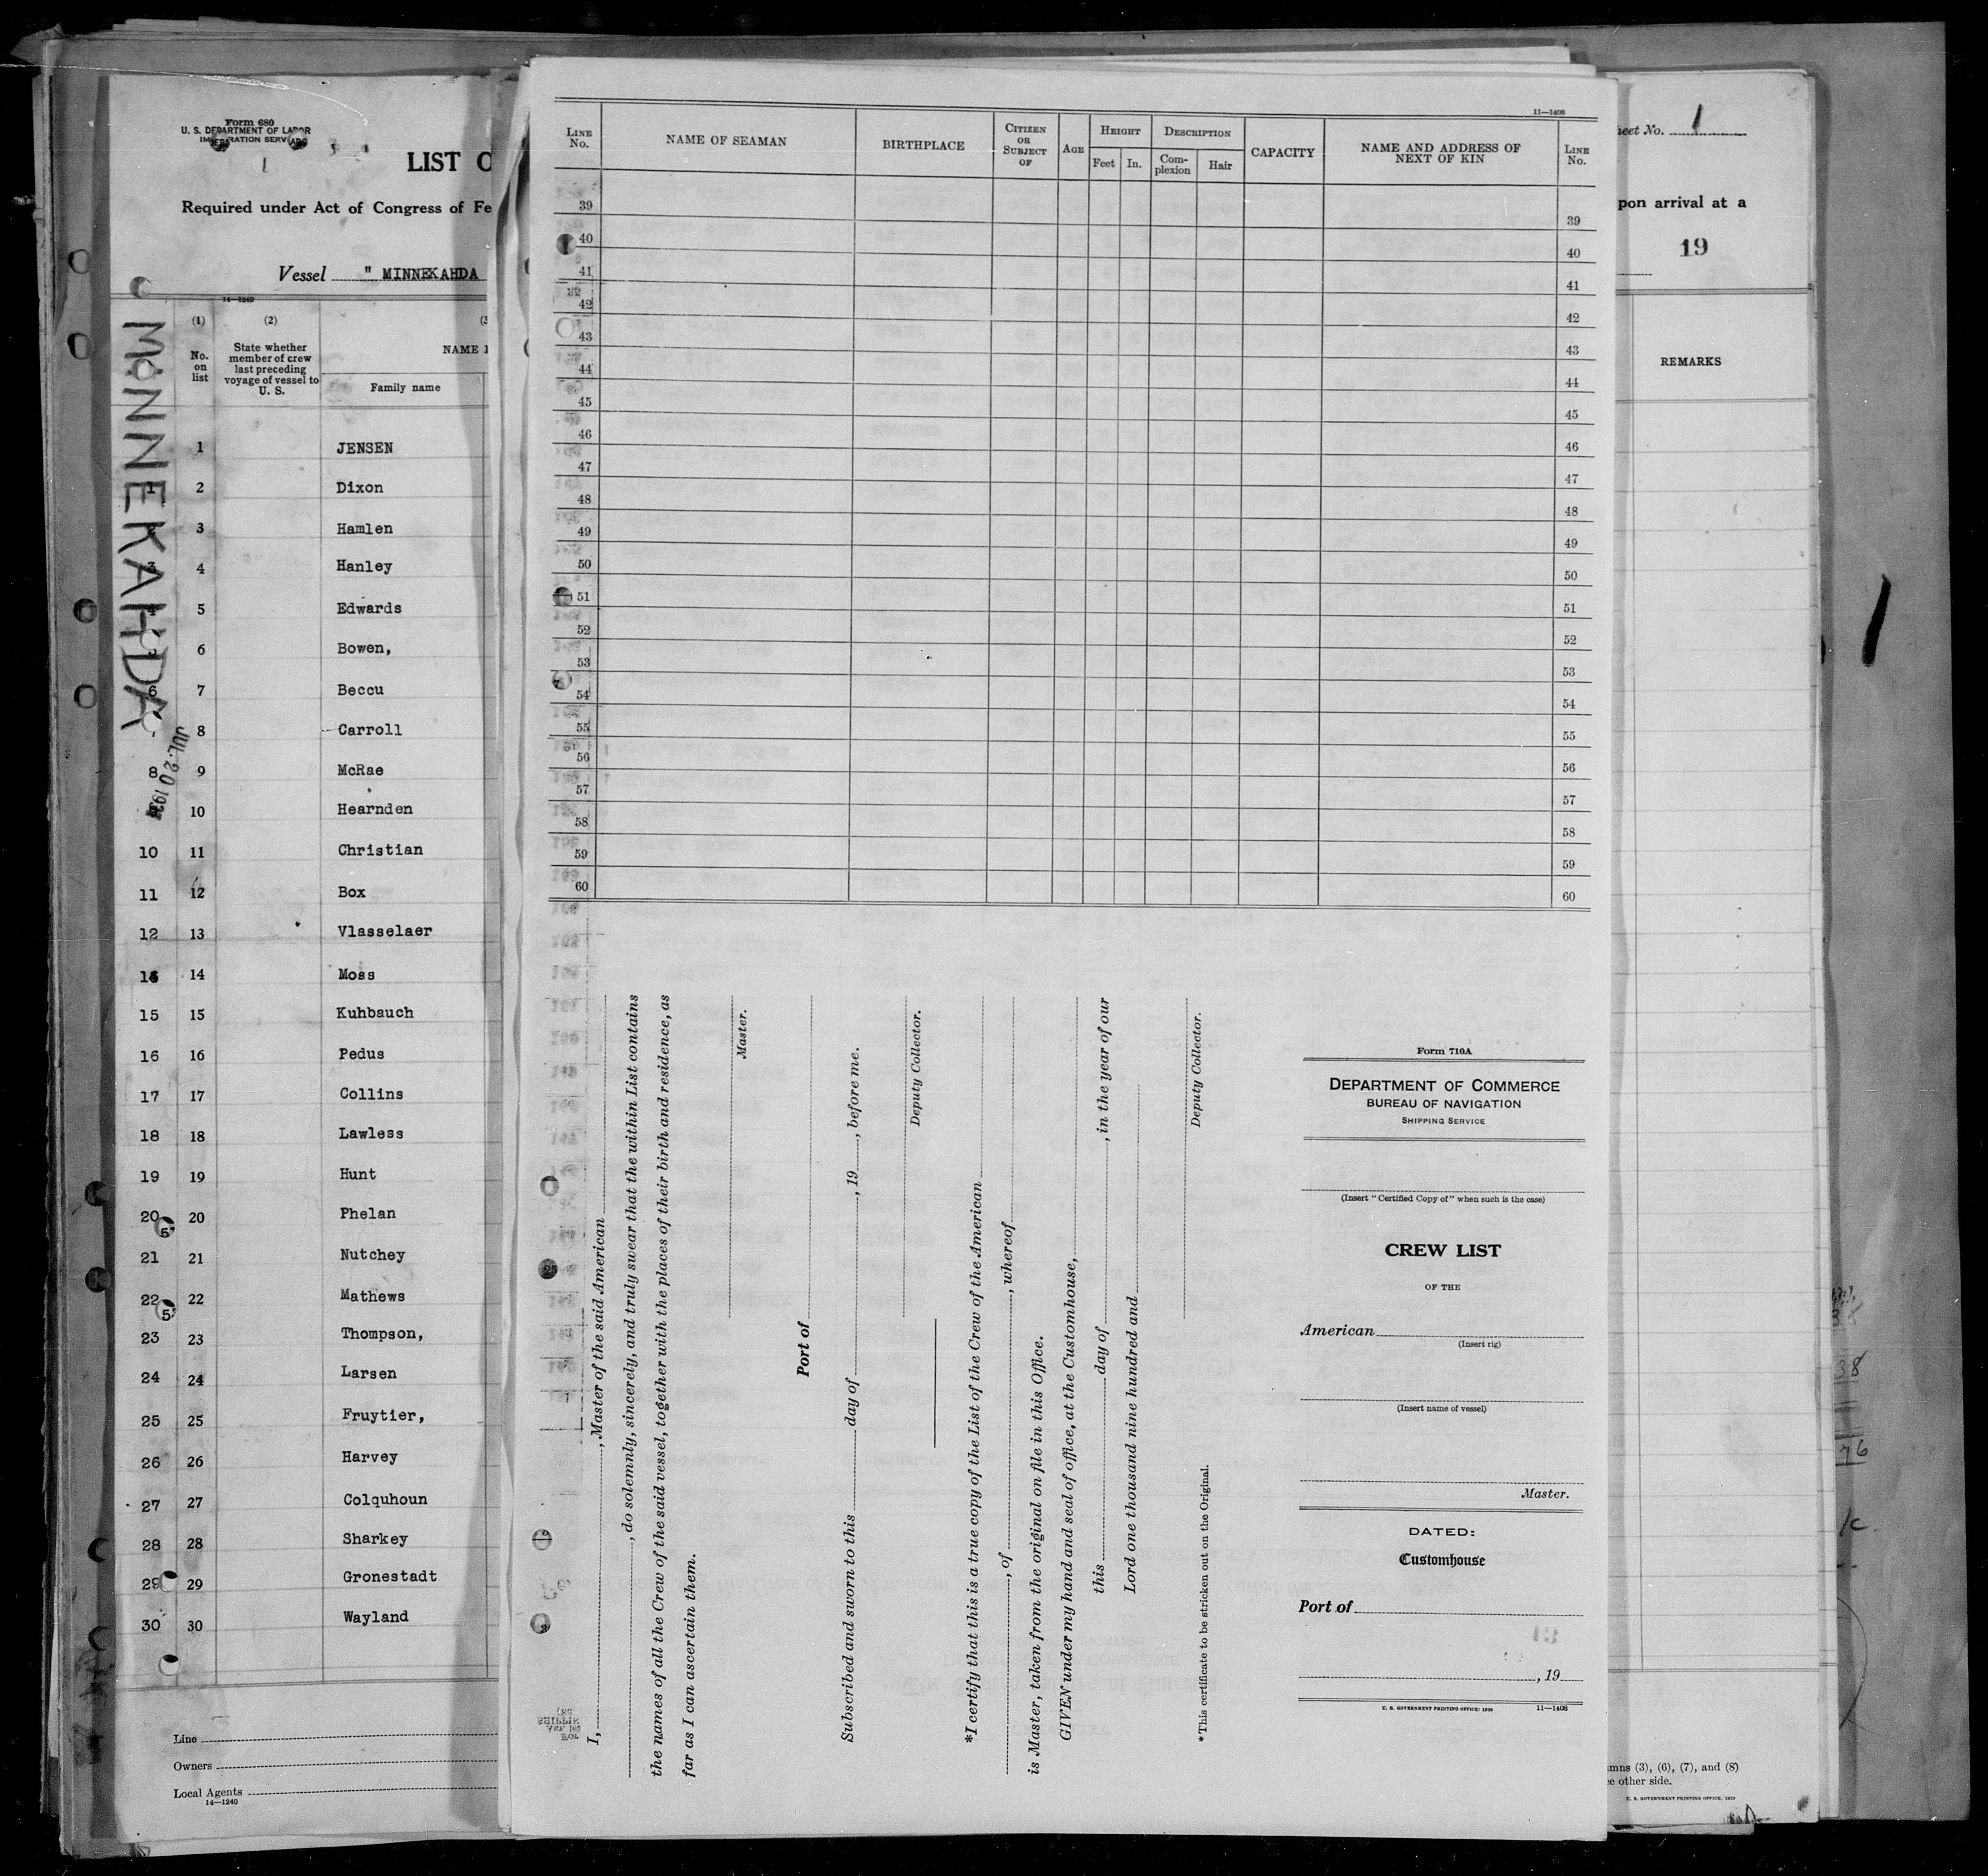 Form 680
U. S. DEPARTMENT OF LABOR
IMMIGRATION SERVICE
1
LIST O
Required under Act of Congress of Fe
Vessel " MINNEKAHDA
14—1240
MINNEKAHDA
JUL 20 19
(1) (2) (3
No. on list
State whether member of crew last preceding voyage of vessel to U. S.
NAME I
Family name
1 JENSEN
1 2 Dixon
2 3 Hamlen
3 4 Hanley
4 5 Edwards
5 6 Bowen,
6 7 Beccu
7 8 Carroll
8 9 McRae
9 10 Hearnden
10 11 Christian
11 12 Box
12 13 Vlasselaer
14 14 Moss
15 15 Kuhbauch
16 16 Pedus
17 17 Collins
18 18 Lawless
19 19 Hunt
20 20 Phelan
21 21 Nutchey
22 22 Mathews
23 23 Thompson,
24 24 Larsen
25 25 Fruytier,
26 26 Harvey
27 27 Colquhoun
28 28 Sharkey
29 29 Gronestadt
30 30 Wayland
5
5
Line
Owners
Local Agents
14—1240
11—1408
LINE No.
NAME OF SEAMAN
BIRTHPLACE
CITIZEN OR SUBJECT OF
AGE
HEIGHT
Feet In.
DESCRIPTION
Com-plexion Hair
CAPACITY
NAME AND ADDRESS OF NEXT OF KIN
LINE No.
39 39
40 40
41 41
42 42
43 43
44 44
45 45
46 46
47 47
48 48
49 49
50 50
51 51
52 52
53 53
54 54
55 55
56 56
57 57
58 58
59 59
60 60
I, , Master of the said American
, do solemnly, sincerely, and truly swear that the within List contains
the names of all the Crew of the said vessel, together with the places of their birth and residence, as
far as I can ascertain them.
Master.
Port of
Subscribed and sworn to this day of , 19 , before me.
Deputy Collector.
*I certify that this is a true copy of the List of the Crew of the American
, of , whereof
is Master, taken from the original on file in this Office.
GIVEN under my hand and seal of office, at the Customhouse,
this day of , in the year of our
Lord one thousand nine hundred and
Deputy Collector.
*This certificate to be stricken out on the Original.
Form 710A
DEPARTMENT OF COMMERCE
BUREAU OF NAVIGATION
SHIPPING SERVICE
(Insert "Certified Copy of" when such is the case)
CREW LIST
OF THE
American
(Insert rig)
(Insert name of vessel)
Master.
DATED:
Customhouse
Port of
, 19
U. S. GOVERNMENT PRINTING OFFICE: 1930 11—1408
heet No. 1
pon arrival at a
19
REMARKS
umns (3), (6), (7), and (8)
e other side.
U. S. GOVERNMENT PRINTING OFFICE. 1930
38
76